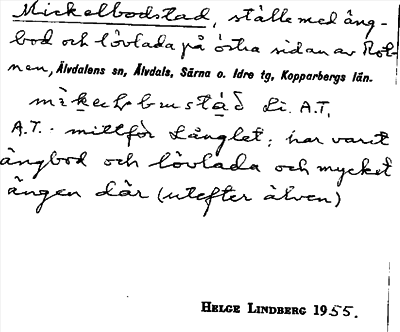 Mickelbodstad, ställe med äng-
bod och lövlada på östra sidan av Rot-
nen, Älvdalens sn, Älvdals, Särna o. Idre tg, Kopparbergs län.
Li. A.T.
A.T. mittför Långlet; har varit
ängbod och lövlada och mycket
ängen där (utefter älven)
HELGE LINDBERG 1955.